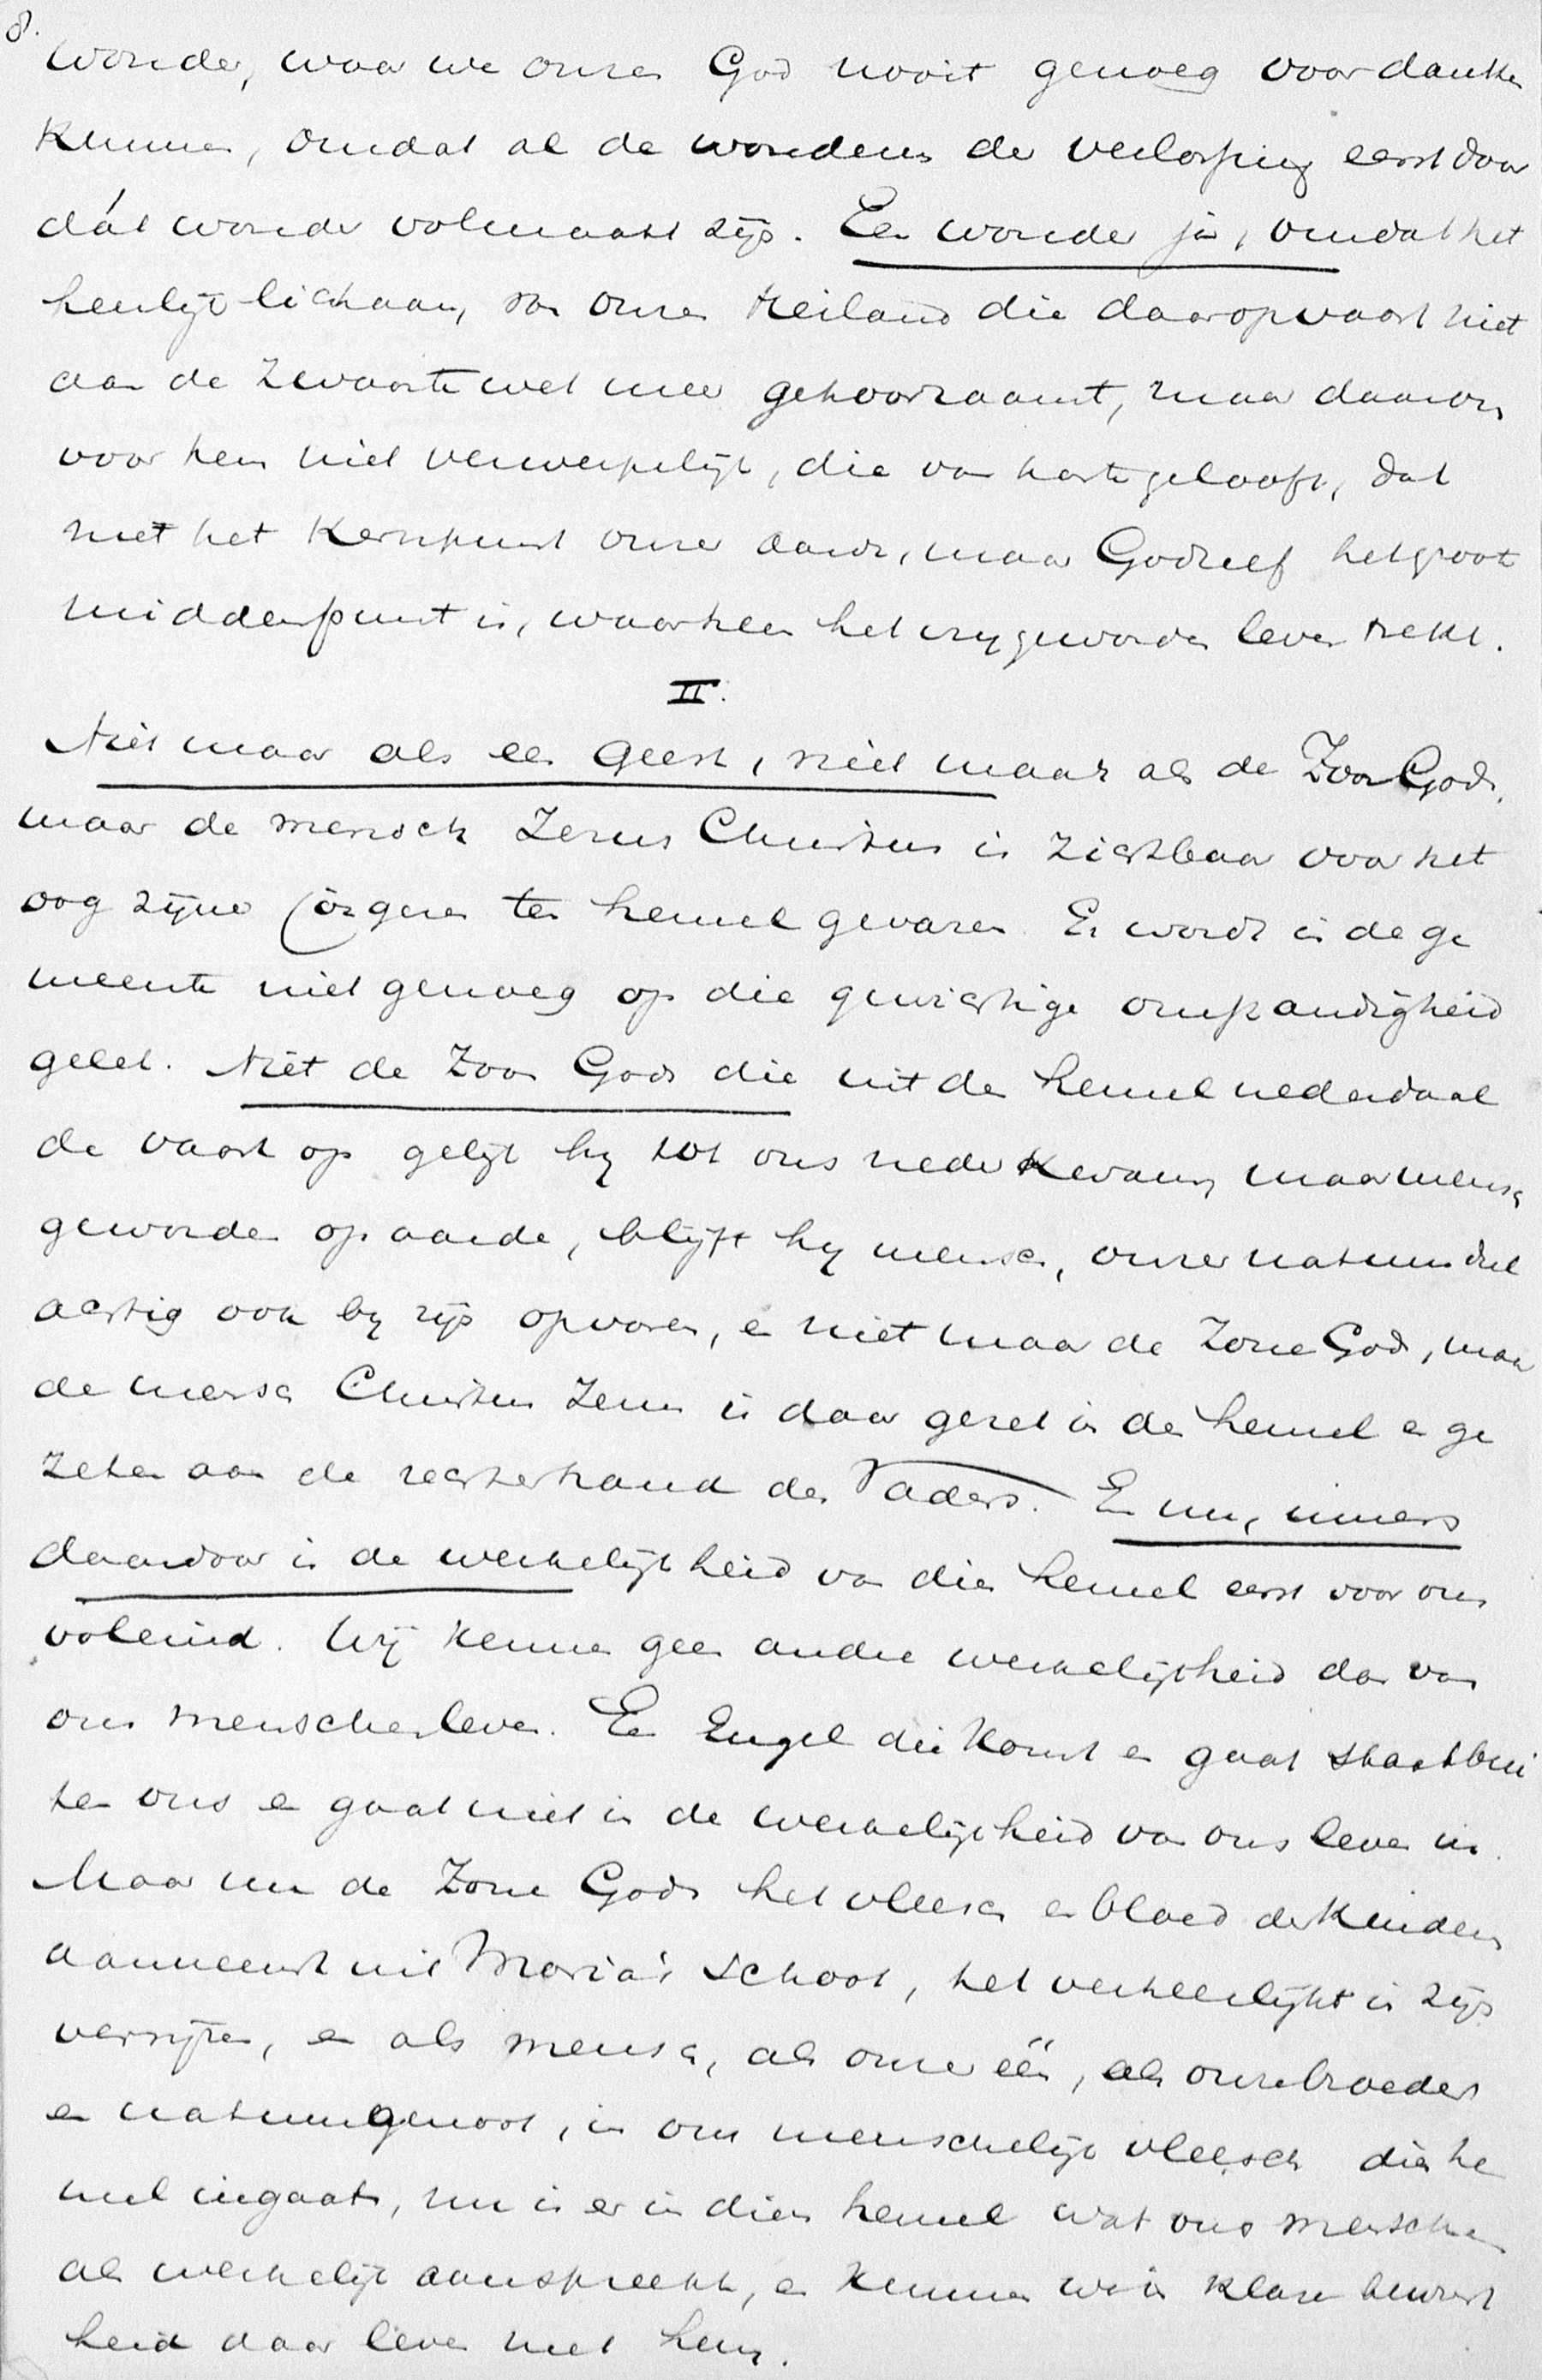 8.
wonder, waar we onzen God nooit genoeg voor danken
kunnen, omdat al de wonderen der verlossing eerst door
dát wonder volmaakt zijn. Een wonder ja, omdat het
heerlijk lichaam, van onzen Heiland die daar opvaart niet
aan de zwaartewet meer gehoorzaamt, maar daarom
voor hem niet verwerpelijk, die van harte gelooft, dat
niet het Kernpunt onzer aarde, maar God zelf het groote
middenpunt is, waarheen het vrij geworden leven trekt.
II.
Niet maar als een Geest, niet maar als de Zoon Gods,
maar de mensch Jezus Christus is zichtbaar voor het
oog zijner jongeren ten hemel gevaren. Er wordt in de ge
meente niet genoeg op die gewichtige omstandigheid
gelet. Niet de Zoon Gods die uit den hemel nederdaal
de vaart op gelijk hij tot ons neder kwam, maar mensch
geworden op aarde, blijft hij mensch, onzer natuur deel
achtig ook bij zijn opvaren, en niet maar de Zone Gods, maar
de mensch Christus Jezus is daar gezet in den hemel en ge
zeten aan de rechterhand des Vaders. En nu, immers
daardoor is de werkelijkheid van dien hemel eerst voor ons
voleind. Wij kennen geen andere werkelijkheid dan van
ons menschenleven. Een Engel die komt en gaat staat bui
ten ons en gaat niet in de werkelijkheid van ons leven in.
Maar nu de Zone Gods het vleesch en bloed der kinderen
aanneemt uit Maria's schoot, het verheerlijkt in zijn
verrijzen, en als mensch, als onzer één, als onze broeder
en natuurgenoot, in ons menschelijk vleesch dien he
mel ingaat, nu is er in dien hemel wat ons menschen
als werkelijk aanspreekt, en kunnen wij in klare bewust
heid daar leven met hem.